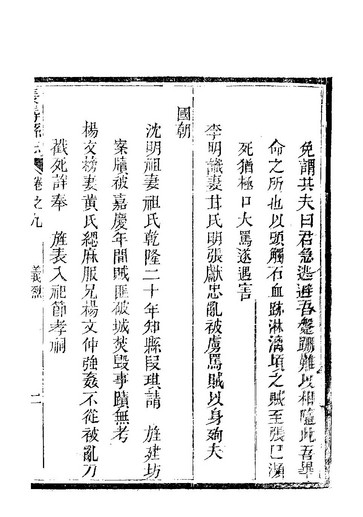 免謂其夫曰君急逃避吾蹩躃難以相隨此吾畢
命之所也以頭觸石血淋漓頃之賊至張已瀕
死猶極口大罵遂遇害
李明識妻甘氏明張獻忠亂被虜罵賊以身殉夫
國朝
沈明祖妻祖氏乾隆二十年知縣段琪請 旌建坊
案牘被嘉慶年間賊匪破城焚毁事蹟無考
楊文炳妻黃氏緦麻服兄楊文仲強姦不從被亂刀
戳死詳奉 旌表入祀節孝祠
卷之九 義烈 二